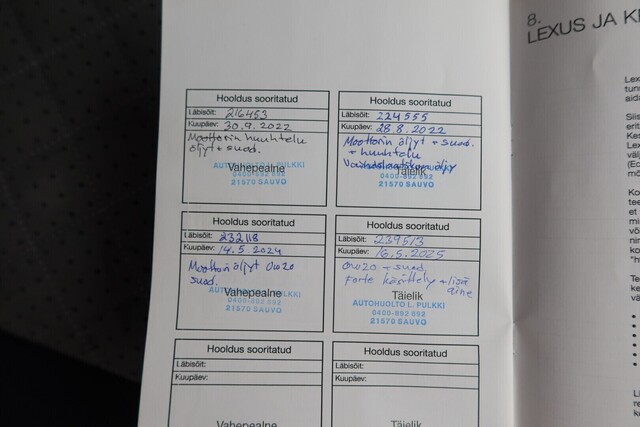 Hooldus sooritatud
Läbisõit: 216453
Kuupäev: 30.9.2022
Moottorin huuhtelu
öljyt + suod.
Vahepealne
AUTOHUOLTO L. PULKKI
0400-892 892
21570 SAUVO
Hooldus sooritatud
Läbisõit: 224555
Kuupäev: 28.8.2022
Moottorin öljyt + suod.
+ huuhtelu
Täielik
AUTOHUOLTO L. PULKKI
0400-892 892
21570 SAUVO
Hooldus sooritatud
Läbisõit: 232118
Kuupäev: 14.5.2024
Moottorin öljyt 0w20
suod.
Vahepealne
AUTOHUOLTO L. PULKKI
0400-892 892
21570 SAUVO
Hooldus sooritatud
Läbisõit: 239513
Kuupäev: 16.5.2025
0w20 + suod.
Forte käsittely + lisä
aine
Täielik
AUTOHUOLTO L. PULKKI
0400-892 892
21570 SAUVO
Hooldus sooritatud
Läbisõit:
Kuupäev:
Vahepealne
Hooldus sooritatud
Läbisõit:
Kuupäev:
Täielik
8.
LEXUS JA